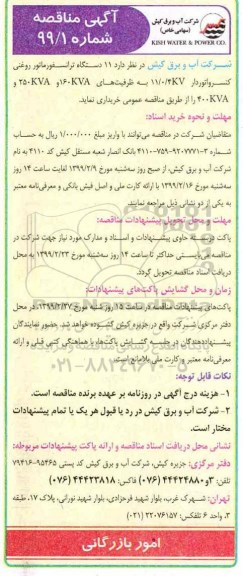 آگهی مناقصه
شماره ۹۹/۱
شرکت آب و برق کیش
(سهامی خاص)
KISH WATER & POWER CO.
شــرکت آب و برق کیش در نظر دارد ۱۱ دستگاه ترانسفورماتور روغنی
کنسرواتوردار ۱۱/۰/۴KV به ظرفیت‌های ۱۶۰KVA و ۲۵۰KVA و
۴۰۰KVA را از طریق مناقصه عمومی خریداری نماید.
مهلت و نحوه خرید اسناد:
متقاضیان شرکت در مناقصه می‌توانند با واریز مبلغ ۱/۰۰۰/۰۰۰ ریال به حساب
شماره ۳-۹۲۰۷۷۷۱-۷۵۹-۴۱۱۰ بانک انصار شعبه مستقل کیش کد ۴۱۱۰ به نام
شرکت آب و برق کیش، از صبح روز سه‌شنبه مورخ ۱۳۹۹/۲/۹ لغایت ساعت ۱۴ روز
سه‌شنبه مورخ ۱۳۹۹/۲/۱۶ با ارائه کارت ملی و اصل فیش بانکی و معرفی‌نامه معتبر
به یکی از دو نشانی ذیل مراجعه نمایند.
مهلت و محل تحویل پیشنهادات مناقصه:
پاکت دربسته حاوی پیشنهادات و اسناد و مدارک مورد نیاز جهت شرکت در
مناقصه می‌بایستی حداکثر تا ساعت ۱۴ روز سه‌شنبه مورخ ۱۳۹۹/۲/۲۳ به محل
دریافت اسناد مناقصه تحویل گردد.
زمان و محل گشایش پاکت‌های پیشنهادات:
پاکت‌های پیشنهادات مناقصه در ساعت ۱۵ روز شنبه مورخ ۱۳۹۹/۲/۲۷، در محل
دفتر مرکزی شرکت واقع در جزیره کیش گشوده خواهد شد. حضور نمایندگان
پیشنهاددهندگان در جلسه گشایش پاکت‌ها، با هماهنگی کتبی قبلی و ارائه
معرفی‌نامه معتبر و کارت ملی بلامانع است.
۰۲۱-۸۸۳۴۹۶۷۰-۵
نکات قابل توجه:
۱- هزینه درج آگهی در روزنامه بر عهده برنده مناقصه است.
۲- شرکت آب و برق کیش در رد یا قبول هر یک یا تمام پیشنهادات
مختار است.
نشانی محل دریافت اسناد مناقصه و ارائه پاکت پیشنهادات مربوطه:
دفتر مرکزی: جزیره کیش، شرکت آب و برق کیش کد پستی ۹۵۴۶۵-۷۹۴۱۶
تلفن: ۳ و ۴۴۴۲۴۸۸۰ (۰۷۶) فاکس: ۴۴۴۲۳۸۱۸ (۰۷۶)
تهران: شهرک غرب، بلوار شهید فرحزادی، بلوار شهید نورانی، پلاک ۱۷، طبقه
۳، واحد ۶ تلفکس: ۲۲۰۷۶۱۵۷ (۰۲۱)
امور بازرگانی